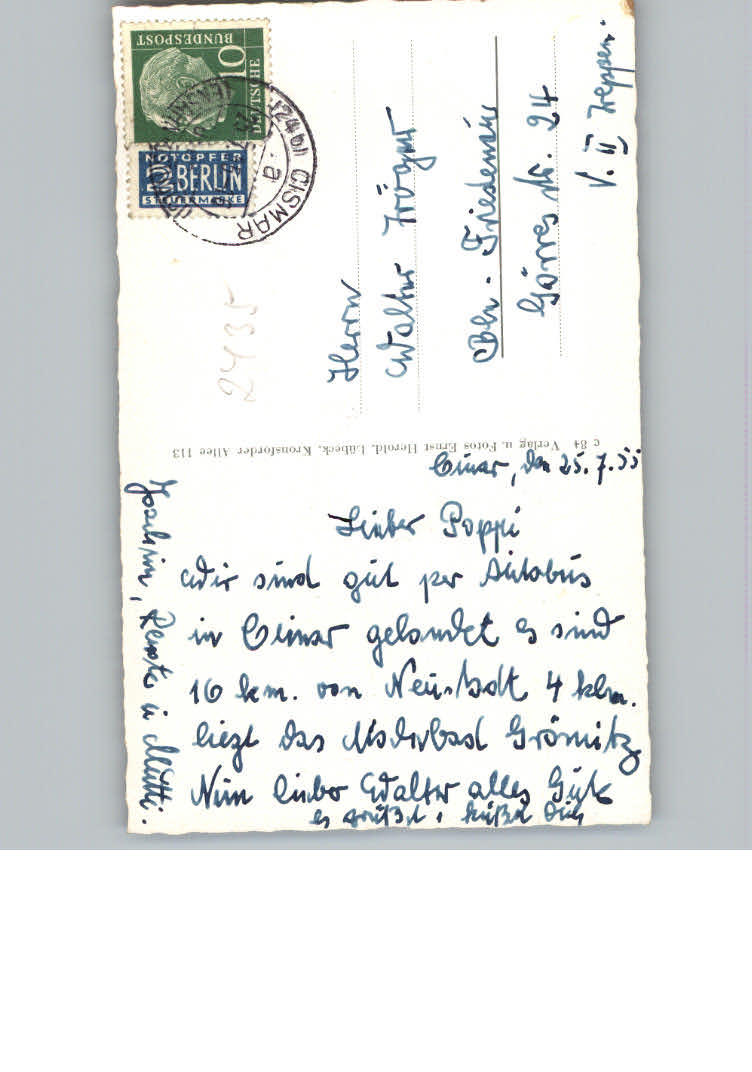 DEUTSCHE
BUNDESPOST
10
NOTOPFER
2 BERLIN
STEUERMARKE
(24b)
CISMAR
a
2435
Herrn
Walter Kröger
Bln.-Friedenau
Görres Str. 24
V. II Treppen.
c 84 Verlag u. Fotos Ernst Herold, Lübeck, Kronsforder Allee 113
Cismar, den 25.7.55
Lieber Pappi
Wir sind gut per Autobus
in Cismar gelandet es sind
16 km. von Neustadt 4 klm.
liegt das Moderbad Grömitz
Nun lieber Walter alles Gute
es grüßt u. küßt Dich
Joachim, u Mutti.